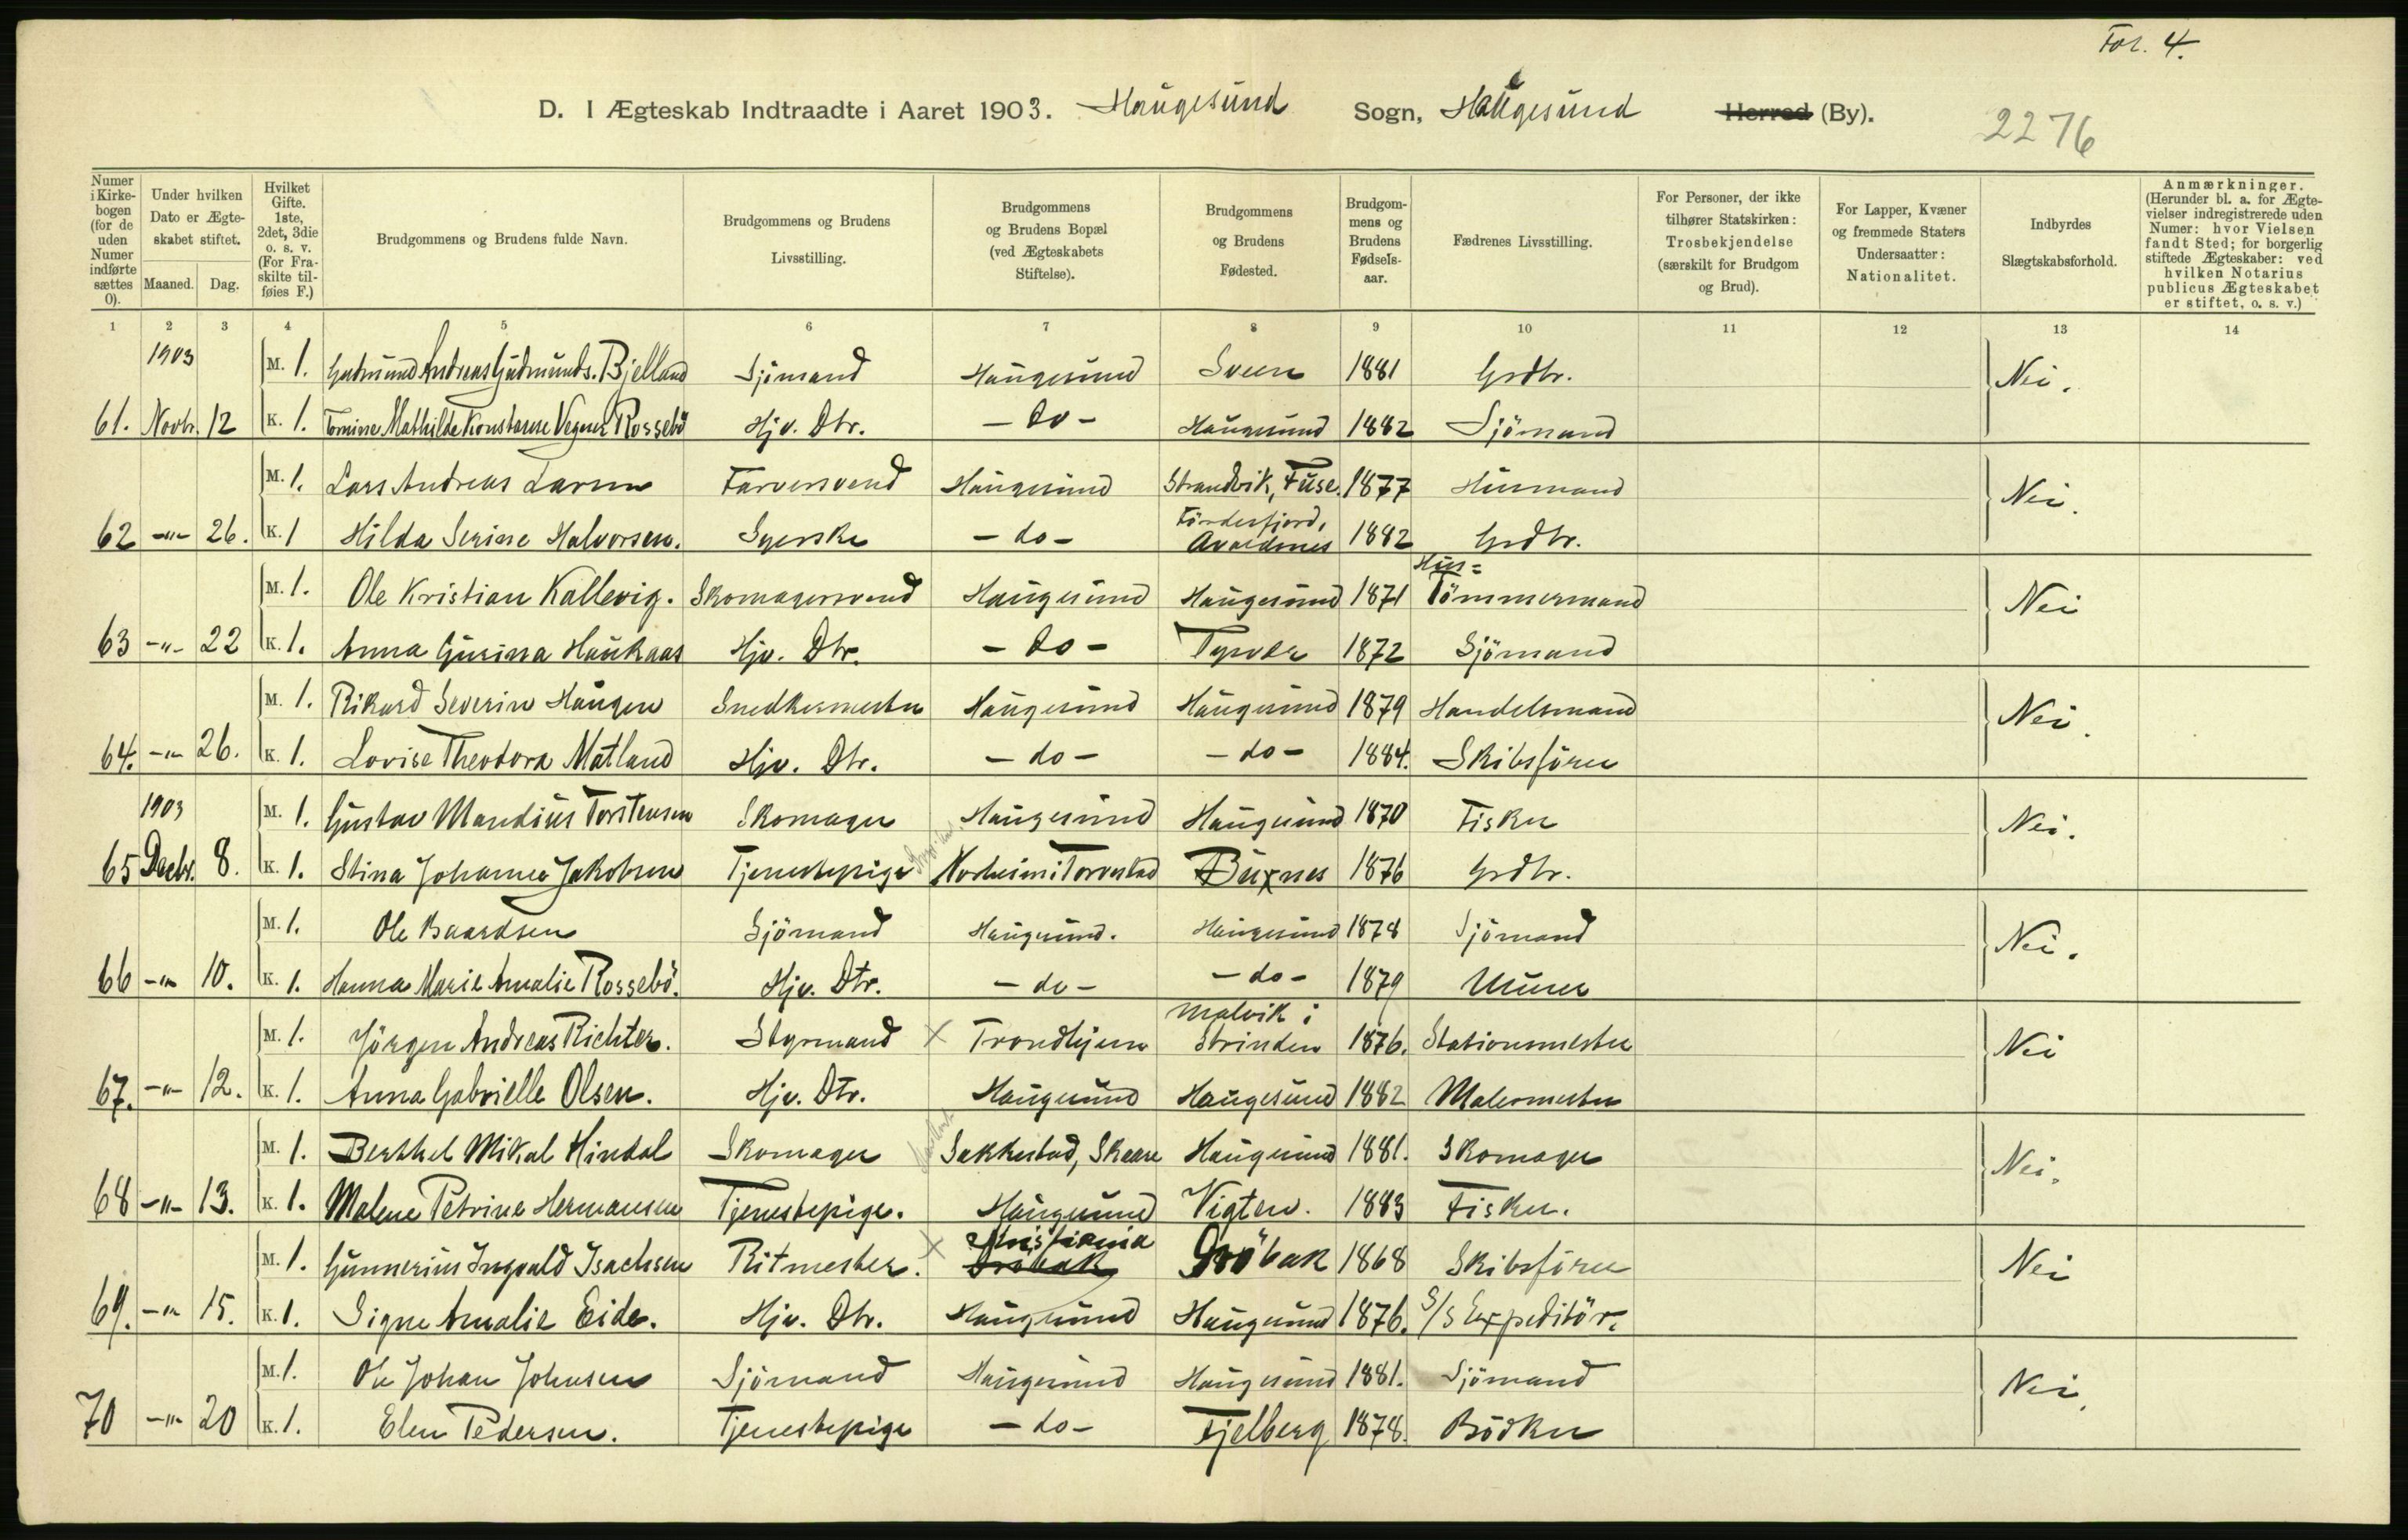 Fol. 4.
D. I Ægteskab Indtraadte i Aaret 1903. Haugesund Sogn, Haugesund Herred (By).
2276
Numer i Kirkebogen (for de uden Numer indførte sættes 0). Under hvilken Dato er Ægteskabet stiftet. Maaned. Dag. Hvilket Gifte. 1ste, 2det, 3die o. s. v. (For Fraskilte tilføies F.) Brudgommens og Brudens fulde Navn. Brudgommens og Brudens Livsstilling. Brudgommens og Brudens Bopæl (ved Ægteskabets Stiftelse). Brudgommens og Brudens Fødested. Brudgommens og Brudens Fødselsaar. Fædrenes Livsstilling. For Personer, der ikke tilhører Statskirken: Trosbekjendelse (særskilt for Brudgom og Brud). For Lapper, Kvæner og fremmede Staters Undersaatter: Nationalitet. Indbyrdes Slægtskabsforhold. Anmærkninger. (Herunder bl. a. for Ægtevielser indregistrerede uden Numer: hvor Vielsen fandt Sted; for borgerlig stiftede Ægteskaber: ved hvilken Notarius publicus Ægteskabet er stiftet, o. s. v.)
1 2 3 4 5 6 7 8 9 10 11 12 13 14
1903 M. 1. Gudmund Andreas Gudmunds. Bjelland Sjömand Haugesund Sveen 1881 Grdbr. Nei.
61. Novbr. 12 K. 1. Tomine Mathilde Konstanse Vegner Rossebö Hjv. Dtr. - do - Haugesund 1882 Sjömand
M. 1. Lars Andreas Larsen Farversvend Haugesund Strandvik, Fuse. 1877 Husmand Nei.
62 -"- 26. K. 1 Hilda Serine Halvorsen. Syerske - do - Fördesfjord, Avaldsnes 1882 Grdbr.
M. 1. Ole Kristian Kallevig. Skomagersvend Haugesund Haugesund 1871 Hus= Tömmermand Nei
63 -"- 22 K. 1. Anna Gurina Haukaas Hjv. Dtr. - do - Tysvær 1872 Sjömand
M. 1. Rikard Severin Haugen Snedkermester Haugesund Haugesund 1879 Handelsmand Nei.
64. -"- 26. K. 1. Lovise Theodora Matland Hjv. Dtr. - do - - do - 1884. Skibsförer
1903 M. 1. Gustav Mandius Torstensen Skomager Haugesund Haugesund 1870 Fisker Nei.
65 Decbr. 8. K. 1. Stina Johanne Jakobsen Tjenestepige Norheim i Torvestad Buxnes 1876 Grdbr.
M. 1. Ole Baardsen Sjömand Haugesund. Haugesund 1878 Sjömand Nei.
66 -"- 10. K. 1. Hanna Marie Amalie Rossebö. Hjv. Dtr. - do - - do - 1879 Murer
M. 1. Jörgen Andreas Richter. Styrmand X Trondhjem Malvik i Strinden 1876. Stationsmester Nei
67. -"- 12. K. 1. Anna Gabrielle Olsen. Hjv. Dtr. Haugesund Haugesund 1882 Malermester
M. 1. Berthel Mikal Hindal Skomager Sakkestad, Skaare Haugesund 1881. Skomager Nei.
68 -"- 13. K. 1. Malene Petrine Hermansen Tjenestepige. Haugesund Vigten. 1883 Fisker.
M. 1. Gunnerius Ingvald Isachsen Ritmester. X Kristiania Dröbak Dröbak 1868 Skibsförer Nei
69. -"- 15. K. 1. Signe Amalie Eide. Hjv. Dtr. Haugesund Haugesund 1876. S/S Expeditör.
M. 1. Ole Johan Johnsen Sjömand Haugesund Haugesund 1881. Sjömand Nei.
70 -"- 20 K. 1. Elen Pedersen. Tjenestepige - do - Fjelberg 1878. Bödker